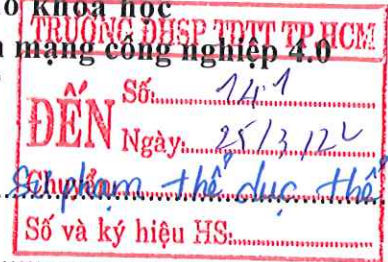 khoa học
TRƯỜNG ĐHSP TDTT TP HCM
mạng công nghiệp 4.0
ĐẾN
Số: 141
Ngày: 25/3/22
Chuyển:
Sư phạm thể dục thể
Số và ký hiệu HS: